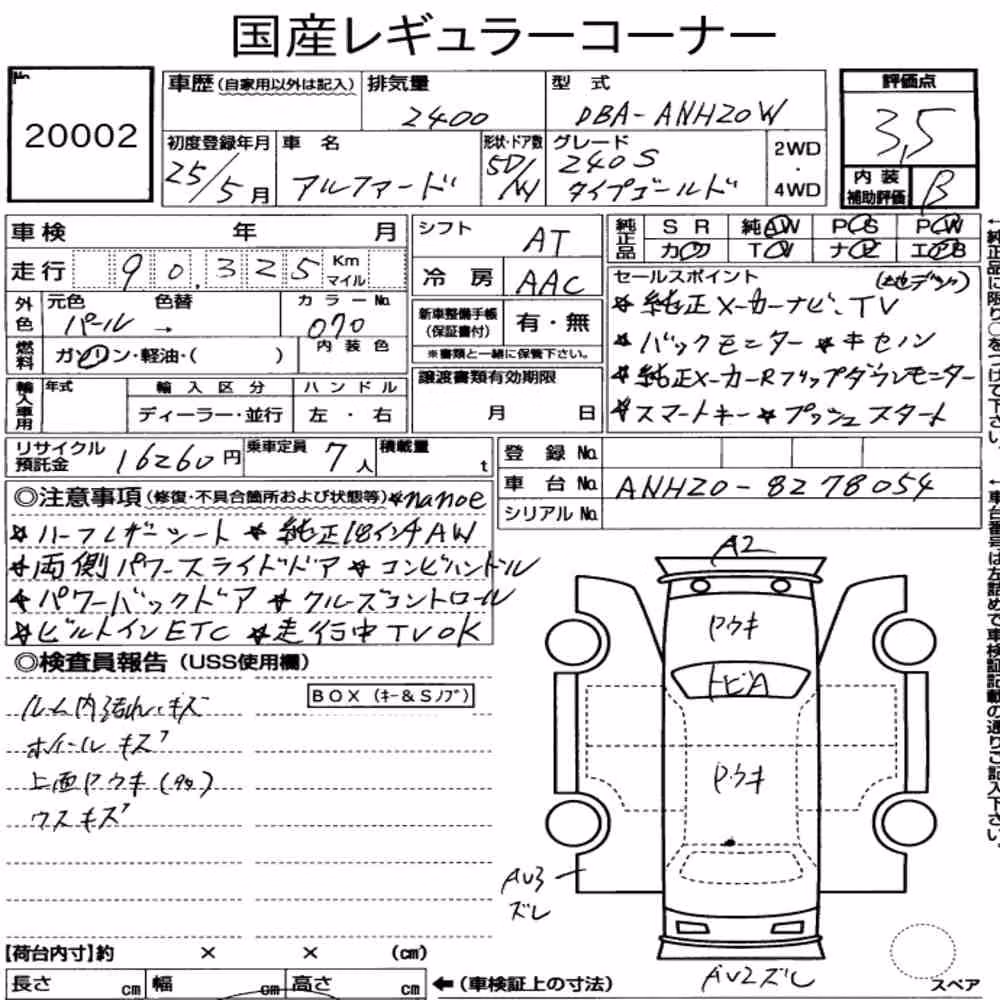 国産レギュラーコーナー
No.
20002
車歴(自家用以外は記入) 排気量 2400 型式 DBA-ANH20W
評価点 3,5
内装補助評価 B
初度登録年月 25/5月 車名 アルファード 形状・ドア数 5D/W グレード 240S タイプゴールド 2WD・4WD
車検 年 月
シフト AT
純正品 SR 純AW PS PW
カワ TV ナビ エアB
走行 90,325 Km マイル
冷房 AAC
外色 元色 パール 色替 → カラーNo. 070
内装色
燃料 ガソリン・軽油・( )
新車整備手帳(保証書付) 有・無
※書類と一緒に保管下さい。
セールスポイント (地デジ)
★純正メーカーナビ、TV
★バックモニター ★キセノン
★純正メーカーRフリップダウンモニター
★スマートキー ★プッシュスタート
輸入車用 年式 輸入区分 ディーラー・並行 ハンドル 左・右
譲渡書類有効期限 月 日
リサイクル預託金 16260円 乗車定員 7人 積載量 t
登録No.
車台No. ANH20-8278054
シリアルNo.
◎注意事項(修復・不具合箇所および状態等)★nanoe
★ハーフレザーシート ★純正18インチAW
★両側パワースライドドア ★コンビハンドル
★パワーバックドア ★クルーズコントロール
★ビルトインETC ★走行中TVOK
◎検査員報告(USS使用欄)
BOX(キー&Sノブ)
ルーム内汚れ・キズ
ホイールキズ
上面Pウキ(タタ)
ウスキズ
A2
Pウキ
トビA
Pウキ
AU3
ズレ
AU2ズレ
スペア
【荷台内寸】約 × × (cm)
長さ cm 幅 cm 高さ cm ←(車検証上の寸法)
←純正品に限り○をつけて下さい。
←車台番号は左詰めで車検証記載の通りご記入下さい。